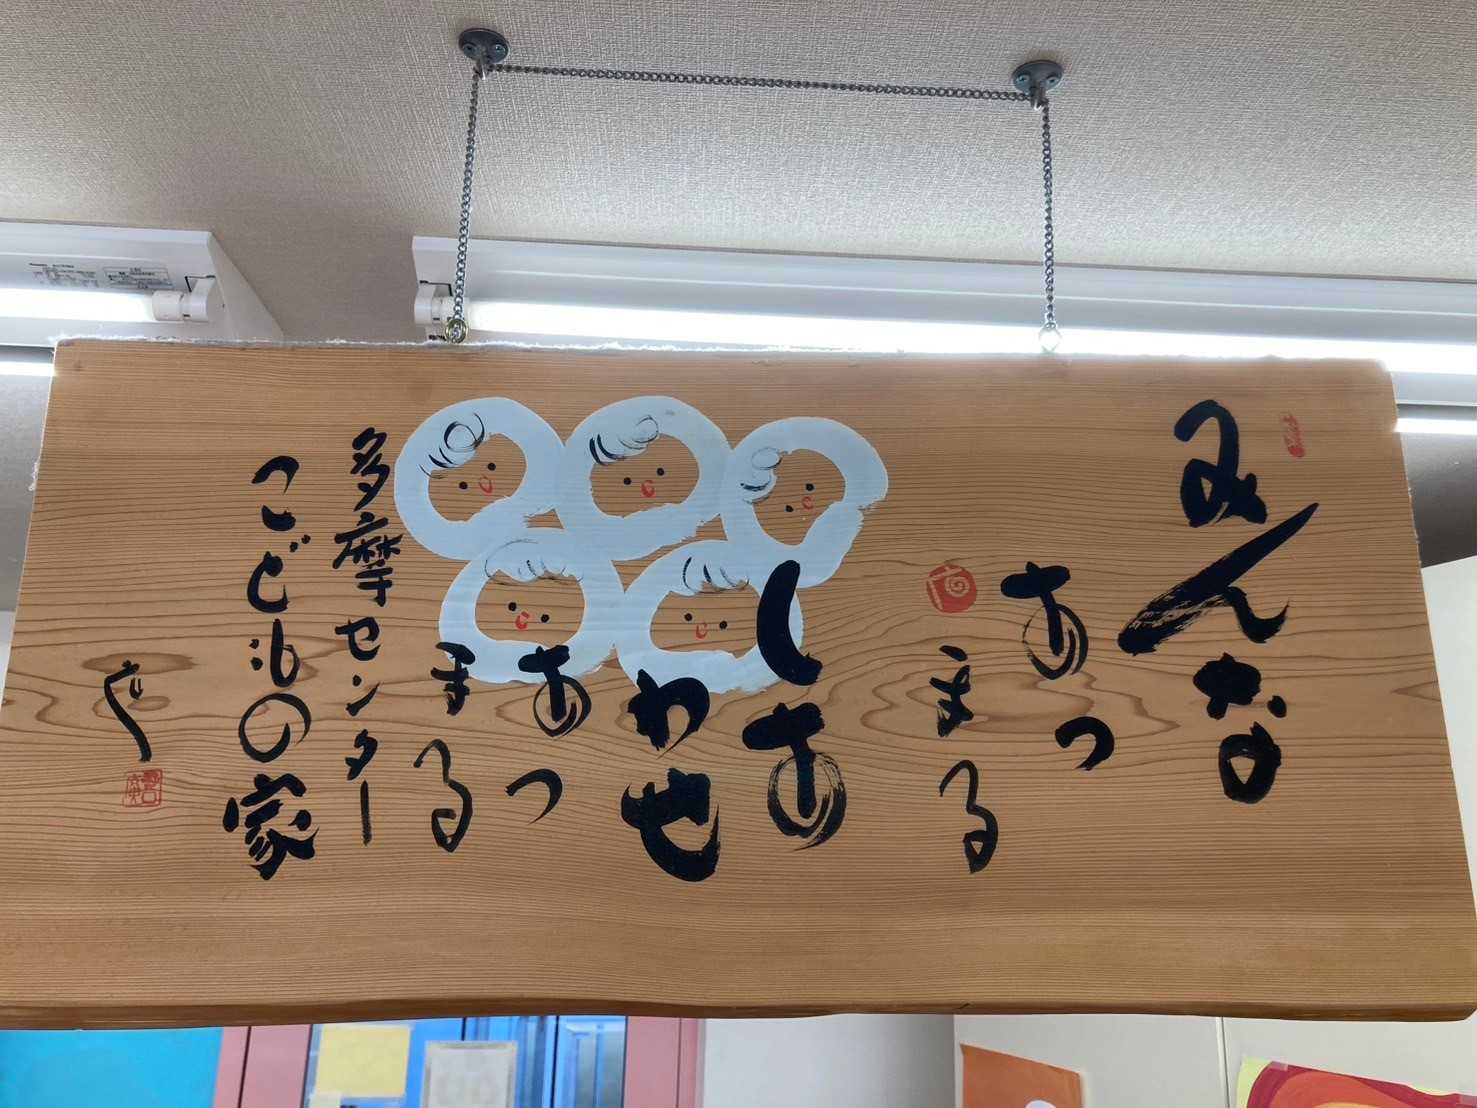 みんな
あつ
まる
しあ
わせ
あつ
まる
多摩センター
こどもの家